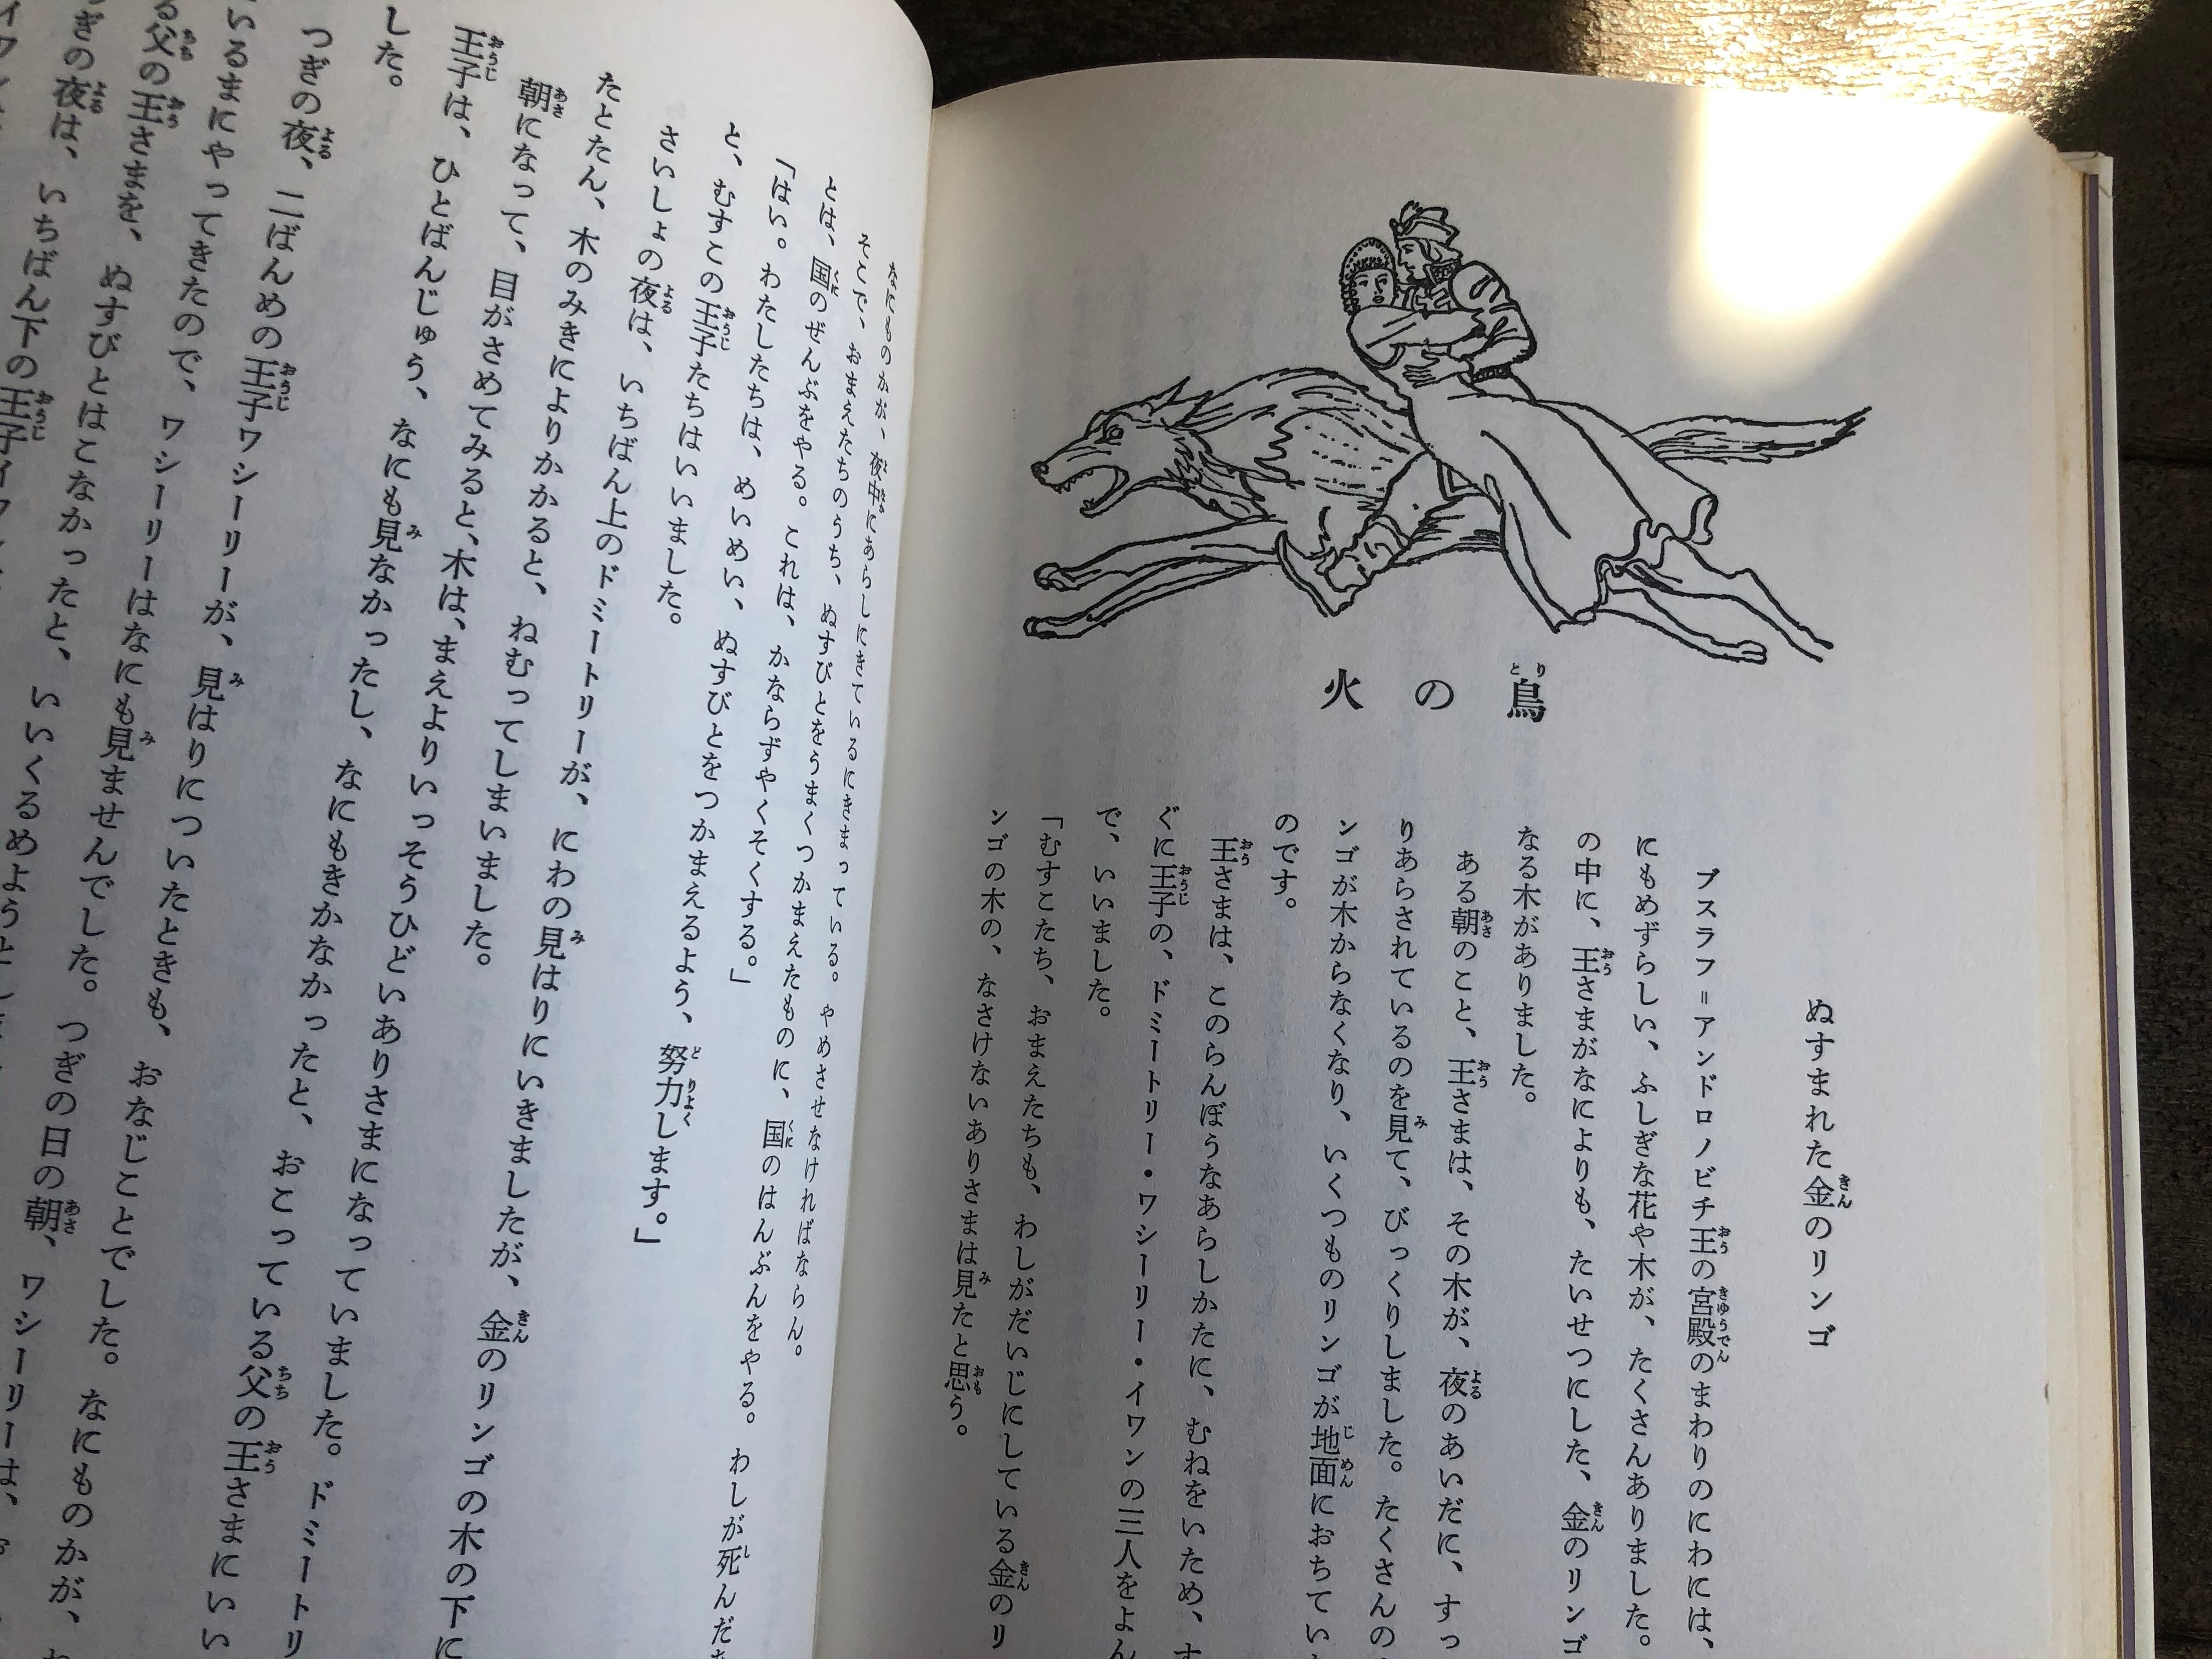 火の鳥
ぬすまれた金のリンゴ
ブスラフ＝アンドロノビチ王の宮殿のまわりのにわには、
にもめずらしい、ふしぎな花や木が、たくさんありました。
の中に、王さまがなによりも、たいせつにした、金のリンゴ
なる木がありました。
ある朝のこと、王さまは、その木が、夜のあいだに、すっ
りあらされているのを見て、びっくりしました。たくさんの
ンゴが木からなくなり、いくつものリンゴが地面におちてい
のです。
王さまは、このらんぼうなあらしかたに、むねをいため、す
ぐに王子の、ドミートリー・ワシーリー・イワンの三人をよん
で、いいました。
「むすこたち、おまえたちも、わしがだいじにしている金のリ
ンゴの木の、なさけないありさまは見たと思う。
なにものかが、夜中にあらしにきているにきまっている。やめさせなければならん。
そこで、おまえたちのうち、ぬすびとをうまくつかまえたものに、国のはんぶんをやる。わしが死んだあ
とは、国のぜんぶをやる。これは、かならずやくそくする。」
「はい。わたしたちは、めいめい、ぬすびとをつかまえるよう、努力します。」
と、むすこの王子たちはいいました。
さいしょの夜は、いちばん上のドミートリーが、にわの見はりにいきましたが、金のリンゴの木の下に
たとたん、木のみきによりかかると、ねむってしまいました。
朝になって、目がさめてみると、木は、まえよりいっそうひどいありさまになっていました。ドミートリ
王子は、ひとばんじゅう、なにも見なかったし、なにもきかなかったと、おこっている父の王さまにいい
した。
つぎの夜、二ばんめの王子ワシーリーが、見はりについたときも、おなじことでした。なにものかが、
いるまにやってきたので、ワシーリーはなにも見ませんでした。つぎの日の朝、ワシーリーは、
る父の王さまを、ぬすびとはこなかったと、いいくるめようと
ぎの夜は、いちばん下の王子イワン